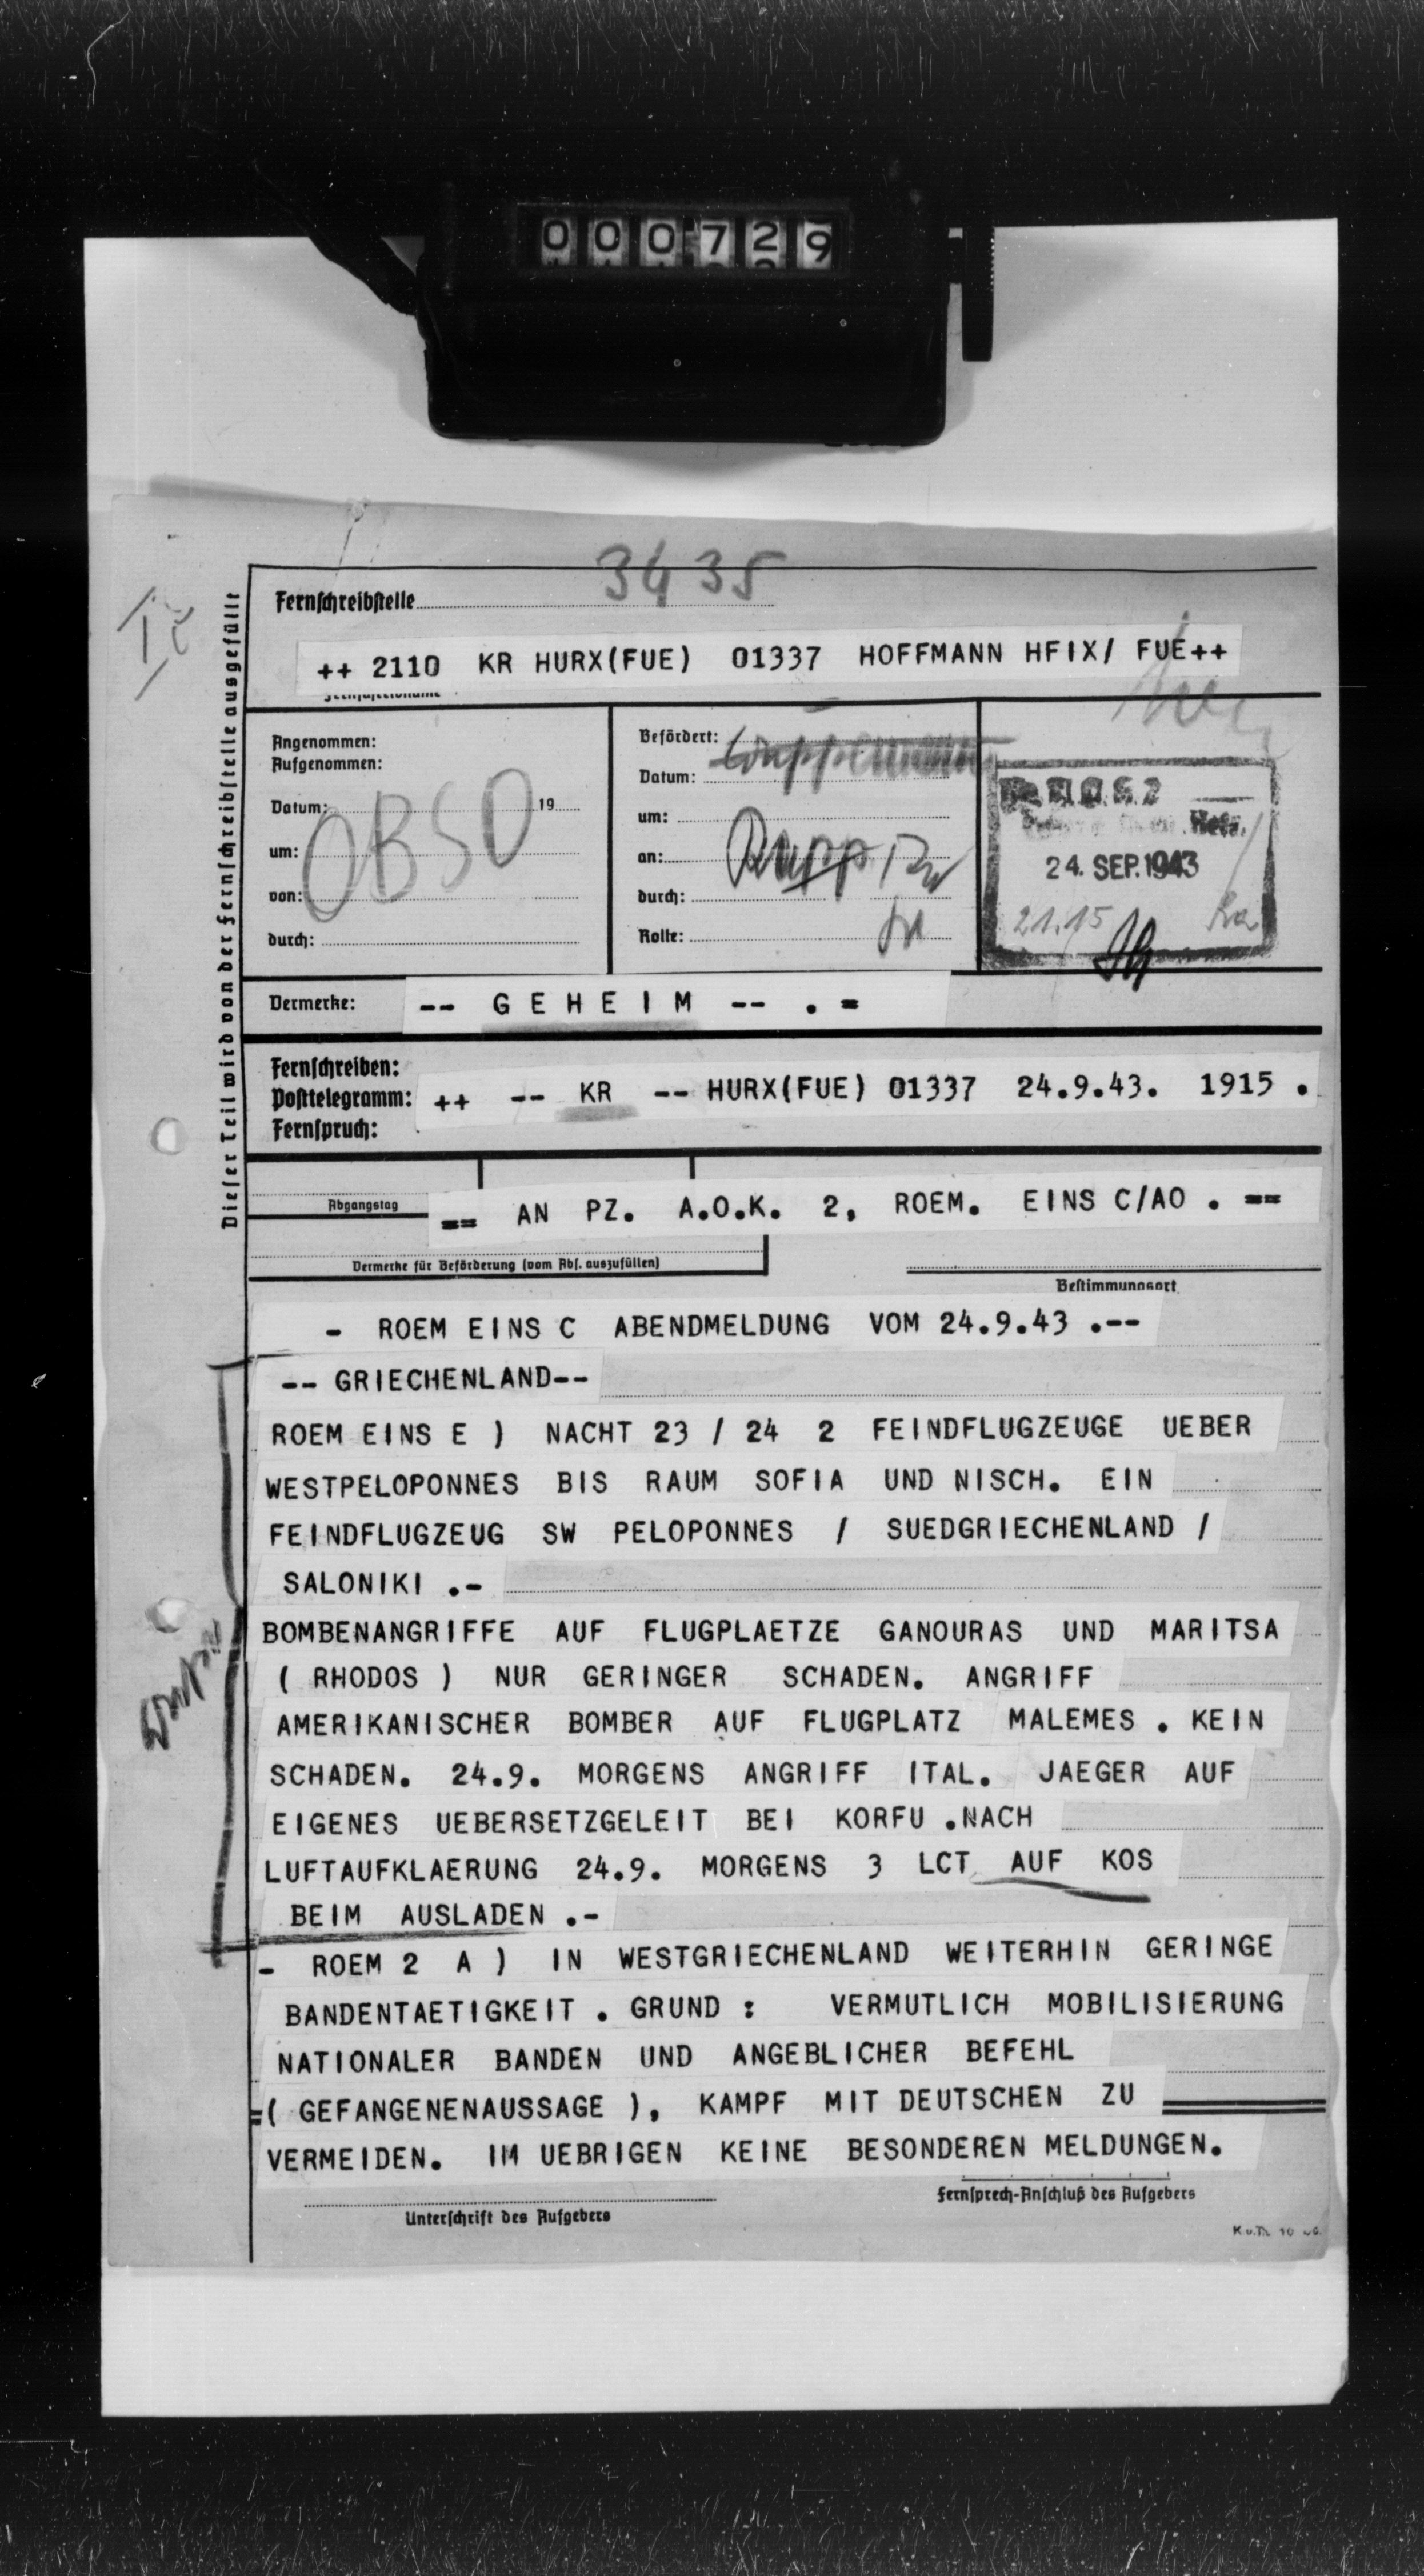 000729
3435
Ic
Dieser Teil wird von der Fernschreibstelle ausgefüllt
Fernschreibstelle
++ 2110 KR HURX(FUE) 01337 HOFFMANN HFIX/ FUE++
Angenommen:
Aufgenommen:
Datum: 19
um:
von:
durch:
OBSO
Befördert:
Datum:
um:
an:
durch:
Rolle:
24. SEP. 1943
21.15
Vermerke: -- G E H E I M -- . =
Fernschreiben:
Posttelegramm: ++ -- KR -- HURX(FUE) 01337 24.9.43. 1915 .
Fernspruch:
Abgangstag
== AN PZ. A.O.K. 2, ROEM. EINS C/AO . ==
Vermerke für Beförderung (vom Abs. auszufüllen)
Bestimmungsort
- ROEM EINS C ABENDMELDUNG VOM 24.9.43 .--
-- GRIECHENLAND--
ROEM EINS E ) NACHT 23 / 24 2 FEINDFLUGZEUGE UEBER
WESTPELOPONNES BIS RAUM SOFIA UND NISCH. EIN
FEINDFLUGZEUG SW PELOPONNES / SUEDGRIECHENLAND /
SALONIKI .-
BOMBENANGRIFFE AUF FLUGPLAETZE GANOURAS UND MARITSA
( RHODOS ) NUR GERINGER SCHADEN. ANGRIFF
AMERIKANISCHER BOMBER AUF FLUGPLATZ MALEMES . KEIN
SCHADEN. 24.9. MORGENS ANGRIFF ITAL. JAEGER AUF
EIGENES UEBERSETZGELEIT BEI KORFU .NACH
LUFTAUFKLAERUNG 24.9. MORGENS 3 LCT AUF KOS
BEIM AUSLADEN .-
- ROEM 2 A ) IN WESTGRIECHENLAND WEITERHIN GERINGE
BANDENTAETIGKEIT . GRUND : VERMUTLICH MOBILISIERUNG
NATIONALER BANDEN UND ANGEBLICHER BEFEHL
=( GEFANGENENAUSSAGE ), KAMPF MIT DEUTSCHEN ZU
VERMEIDEN. IM UEBRIGEN KEINE BESONDEREN MELDUNGEN.
Unterschrift des Aufgebers
Fernsprech-Anschluß des Aufgebers